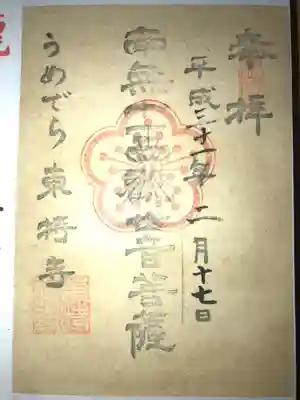 奉拝
平成三十一年二月十七日
南無十一面観世音菩薩
うめでら東持寺